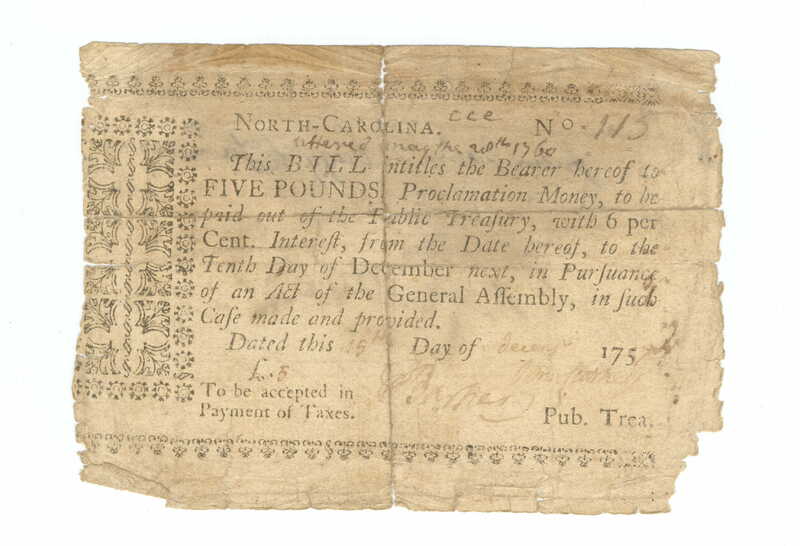 NORTH-CAROLINA. cce No. 115
uttered may the 20th 1760
This BILL intitles the Bearer hereof to
FIVE POUNDS Proclamation Money, to be
paid out of the Public Treasury, with 6 per
Cent. Interest, from the Date hereof, to the
Tenth Day of December next, in Pursuance
of an Act of the General Assembly, in such
Case made and provided.
Dated this Day of 175
£. 5
To be accepted in
Payment of Taxes. Pub. Trea.